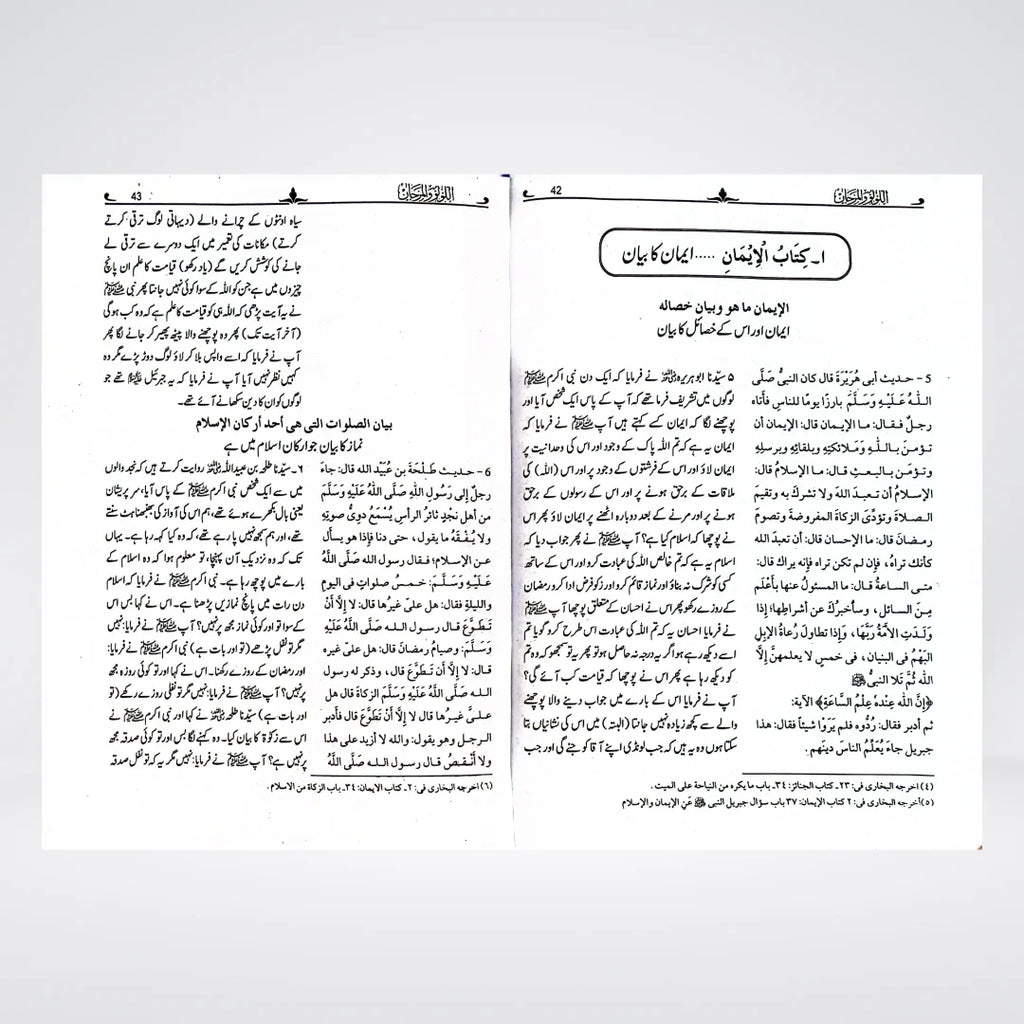 42
اللؤلؤ والمرجان
۱۔ كِتَابُ الْإِيْمَانِ ..... ایمان کا بیان
الإيمان ما هو و بيان خصاله
ایمان اور اس کے خصائل کا بیان
5- حديث أبي هُرَيْرَةَ قال كان النبيُّ صَلَّى
اللّٰهُ عَلَيْهِ وَسَلَّمَ بارزًا يومًا للناسِ فأتاه
رجلٌ فقال: ما الإيمان قال: الإيمان أن
تؤمنَ باللّٰهِ وملائكتِهِ وبلقائِهِ وبرسلِهِ
وتؤمنَ بالبعثِ قال: ما الإسلامُ قال:
الإسلامُ أن تعبدَ اللهَ ولا تشركَ به وتقيمَ
الصلاةَ وتؤدِّىَ الزكاةَ المفروضةَ وتصومَ
رمضانَ قال: ما الإحسان قال: أن تعبدَ الله
كأنك تراهُ، فإن لم تكن تراه فإنه يراك قال:
متى الساعةُ قال: ما المسئولُ عنها بأَعْلَم
مِنَ السائل، وسأخبرُك عن أشراطِها؛ إِذا
وَلَدَتِ الأَمَةُ رَبَّهَا، وَإِذا تطاولَ رُعاةُ الإبلِ
البَهْمُ فى البنيان، فى خمسٍ لا يعلمهنَّ إِلَّا
اللّٰه ثُمَّ تَلا النبىُّ ﷺ
﴿إنَّ اللّٰه عِنْدَهُ عِلْمُ السَّاعَةِ﴾ الآية:
ثم أدبر فقال: رُدُّوه فلم يَرَوْا شيئاً فقال: هذا
جبريل جاءَ يُعَلِّمُ الناسَ دينَهم.
۵ سیّدنا ابو ہریرہ رضی اللہ عنہ نے فرمایا کہ ایک دن نبی اکرم ﷺ
لوگوں میں تشریف فرما تھے کہ آپ کے پاس ایک شخص آیا اور
پوچھنے لگا کہ ایمان کسے کہتے ہیں آپ ﷺ نے فرمایا کہ
ایمان یہ ہے کہ تم اللہ پاک کے وجود اور اس کی وحدانیت پر
ایمان لاؤ اور اس کے فرشتوں کے وجود پر اور اس (اللہ) کی
ملاقات کے برحق ہونے پر اور اس کے رسولوں کے برحق
ہونے پر اور مرنے کے بعد دوبارہ اٹھنے پر ایمان لاؤ پھر اس
نے پوچھا کہ اسلام کیا ہے؟ آپ ﷺ نے پھر جواب دیا کہ
اسلام یہ ہے کہ تم خالص اللہ کی عبادت کرو اور اس کے ساتھ
کسی کو شرک نہ بناؤ اور نماز قائم کرو اور زکوٰۃ فرض ادا کرو اور رمضان
کے روزے رکھو پھر اس نے احسان کے متعلق پوچھا آپ ﷺ
نے فرمایا احسان یہ کہ تم اللہ کی عبادت اس طرح کرو گویا تم
اسے دیکھ رہے ہو اگر یہ درجہ نہ حاصل ہو تو پھر یہ تو سمجھو کہ وہ تم
کو دیکھ رہا ہے پھر اس نے پوچھا کہ قیامت کب آئے گی؟
آپ نے فرمایا اس کے بارے میں جواب دینے والا پوچھنے
والے سے کچھ زیادہ نہیں جانتا (البتہ) میں اس کی نشانیاں بتا
سکتا ہوں وہ یہ ہیں کہ جب لونڈی اپنے آقا کو جنے گی اور جب
(٤) اخرجه البخارى فى: ٢٣- كتاب الجنائز: ٣٤- باب ما يكره من النياحة على الميت.
(٥) أخرجه البخارى فى: ٢ كتاب الإيمان: ٣٧ باب سؤال جبريل النبى ﷺ عَنِ الإيمان والإسلام
43
اللؤلؤ والمرجان
سیاہ اونٹوں کے چرانے والے (دیہاتی لوگ ترقی کرتے
کرتے) مکانات کی تعمیر میں ایک دوسرے سے ترقی لے
جانے کی کوشش کریں گے (یاد رکھو) قیامت کا علم ان پانچ
چیزوں میں ہے جن کو اللہ کے سوا کوئی نہیں جانتا پھر نبی ﷺ
نے یہ آیت پڑھی کہ اللہ ہی کو قیامت کا علم ہے کہ وہ کب ہو گی
(آخر آیت تک) پھر وہ پوچھنے والا پیٹھ پھیر کر جانے لگا پھر
آپ نے فرمایا کہ اسے واپس بلا کر لاؤ لوگ دوڑ پڑے مگر وہ
کہیں نظر نہیں آیا آپ نے فرمایا کہ یہ جبرئیل ؑ تھے جو
لوگوں کو ان کا دین سکھانے آئے تھے۔
بيان الصلوات التي هى أحد أركان الإسلام
نماز کا بیان جو ارکان اسلام میں ہے
6- حديث طَلْحَةَ بنِ عُبَيْدِ الله قال: جاءَ
رجلٌ إلى رَسُولِ اللهِ صَلَّى اللّٰهُ عَلَيْهِ وَسَلَّمَ
من أهل نجْدٍ ثائرُ الرأسِ يُسْمَعُ دوىُّ صوتِهِ
ولا يُفْقَهُ ما يقول، حتى دنا فإذا هو يسأَل
عن الإسلام؛ فقال رسول الله صَلَّى اللّٰهُ
عَلَيْهِ وَسَلَّمَ: خمسُ صلواتٍ فى اليوم
والليلةِ فقال: هل علىَّ غيرُها قال: لا إِلَّا أَنْ
تَطَوَّعَ قال رسول الله صَلَّى اللّٰهُ عَلَيْهِ
وَسَلَّمَ: وصيامُ رمضانَ قال: هل علىَّ غيره
قال: لا إِلَّا أَن تَطَوَّعَ قال، وذكر له رسول
الله صَلَّى اللّٰهُ عَلَيْهِ وَسَلَّمَ الزكاةَ قال هل
علىَّ غيرُها قال لا إِلَّا أَنْ تَطَوَّعَ قال فأدبر
الرجل وهو يقول: والله لا أزيد على هذا
ولا أَنقصُ قال رسول الله صَلَّى اللّٰهُ
۶۔ سیّدنا طلحہ بن عبید اللہ رضی اللہ عنہ روایت کرتے ہیں کہ نجد والوں
میں سے ایک شخص نبی اکرم ﷺ کے پاس آیا، سر پریشان
یعنی بال بکھرے ہوئے تھے، ہم اس کی آواز کی بھنبھناہٹ سنتے
تھے، اور ہم سمجھ نہیں پا رہے تھے، کہ وہ کیا کہہ رہا ہے۔ یہاں
تک کہ وہ نزدیک آن پہنچا، تو معلوم ہوا کہ وہ اسلام کے
بارے میں پوچھ رہا ہے۔ نبی اکرم ﷺ نے فرمایا کہ اسلام
دن رات میں پانچ نمازیں پڑھنا ہے۔ اس نے کہا بس اس
کے سوا تو اور کوئی نماز مجھ پر نہیں؟ آپ ﷺ نے فرمایا: نہیں
مگر تو نفل پڑھے (تو اور بات ہے) نبی اکرم ﷺ نے فرمایا:
اور رمضان کے روزے رکھنا۔ اس نے کہا اور تو کوئی روزہ مجھ
پر نہیں؟ آپ ﷺ نے فرمایا: نہیں مگر تو نفلی روزے رکھے (تو
اور بات ہے) سیّدنا طلحہ رضی اللہ عنہ نے کہا اور نبی اکرم ﷺ نے
اس سے زکوٰۃ کا بیان کیا۔ وہ کہنے لگا بس اور تو کوئی صدقہ مجھ
پر نہیں ہے؟ آپ ﷺ نے فرمایا: نہیں مگر یہ کہ تو نفل صدقہ
(٦) اخرجه البخارى فى: ٢- كتاب الايمان: ٣٤- باب الزكاة من الاسلام.